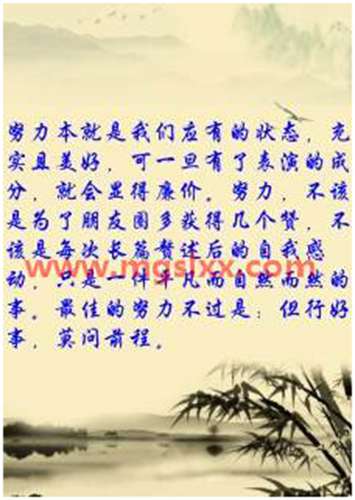 努力本就是我们应有的状态，充
实且美好，可一旦有了表演的成
分，就会显得廉价。努力，不该
是为了朋友圈多获得几个赞，不
该是每次长篇赘述后的自我感
动，只是一件平凡而自然而然的
事。最佳的努力不过是：但行好
事，莫问前程。
www.mgslxx.com